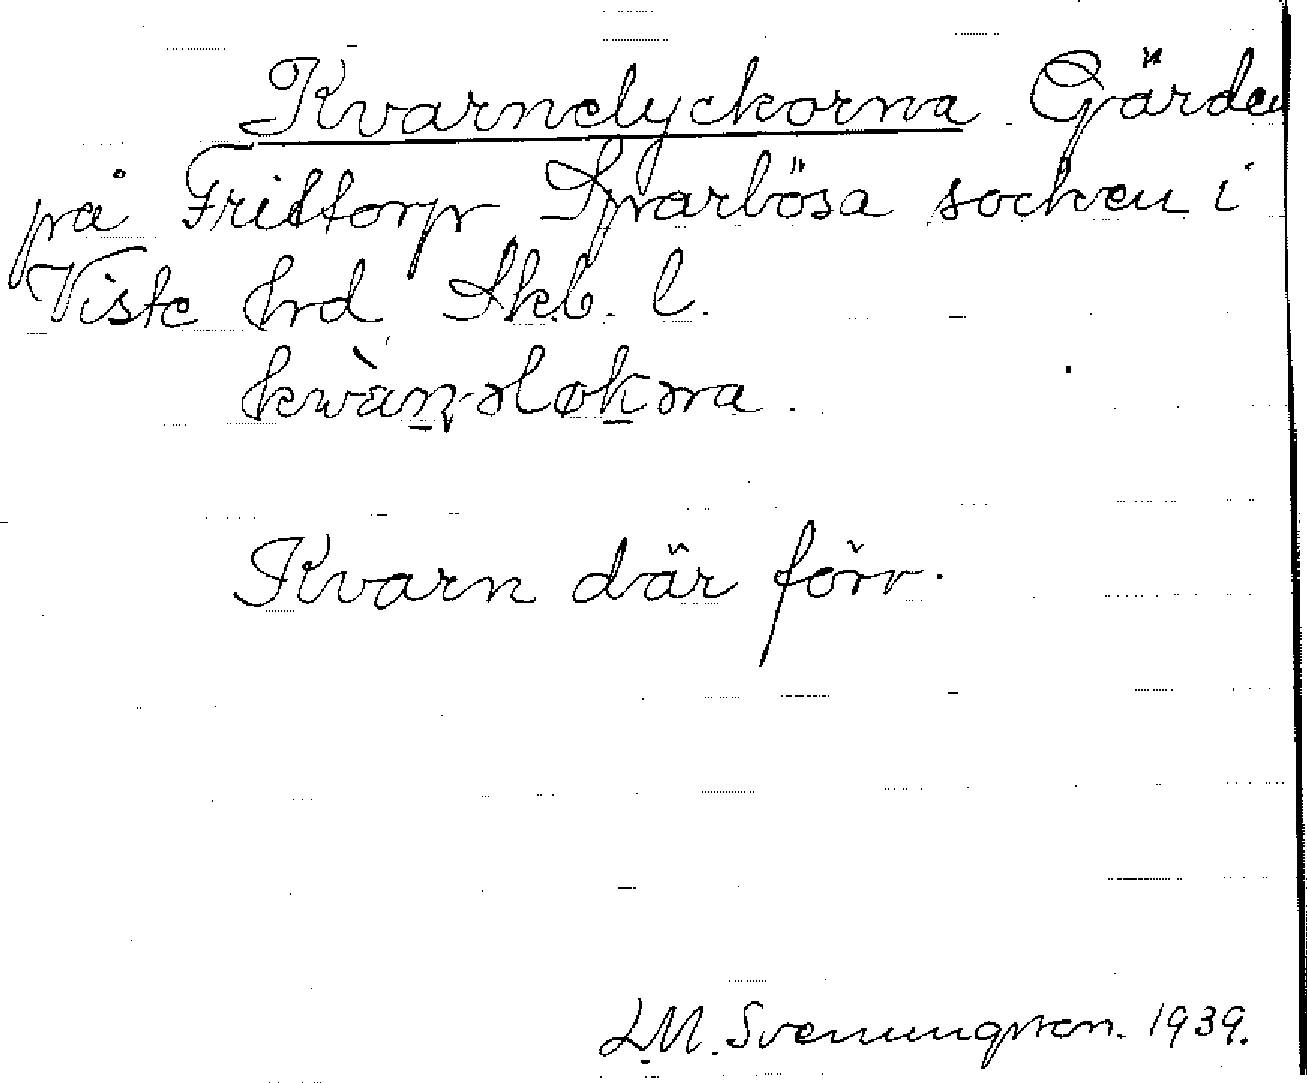 Kvarnelyckorna. Gärden
på Frittorp Sparlösa socken i
Viste hrd Skb. l.
kwàṉ-əløḵəra.
Kvarn där förr.
L.M. Svenungsson. 1939.